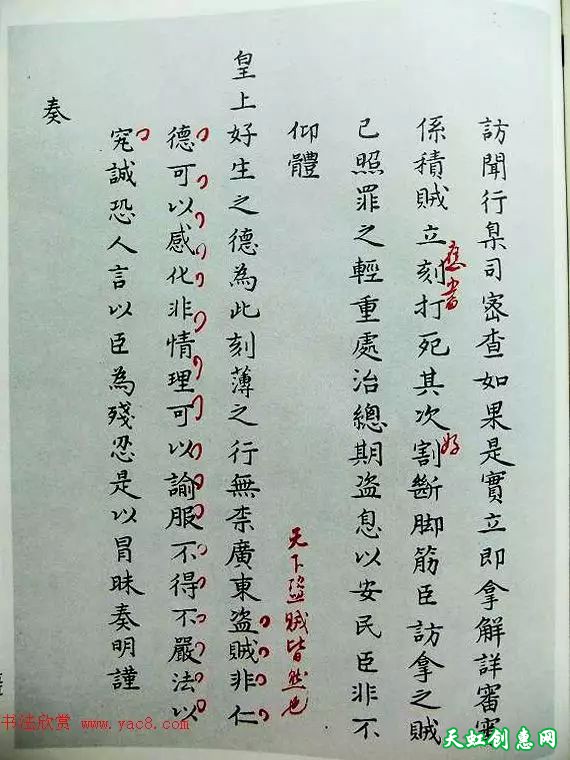 訪聞行臬司密查如果是實立即拿解詳審審
係積賊立刻打死其次割斷脚筋臣訪拿之賊
應當
好
已照罪之輕重處治總期盗息以安民臣非不
仰體
皇上好生之德為此刻薄之行無柰廣東盗賊非仁
天下盜賊皆然也
德可以感化非情理可以諭服不得不嚴法以
究誠恐人言以臣為殘忍是以冒昧奏明謹
奏
书法欣赏 www.yac8.com
天虹创惠网